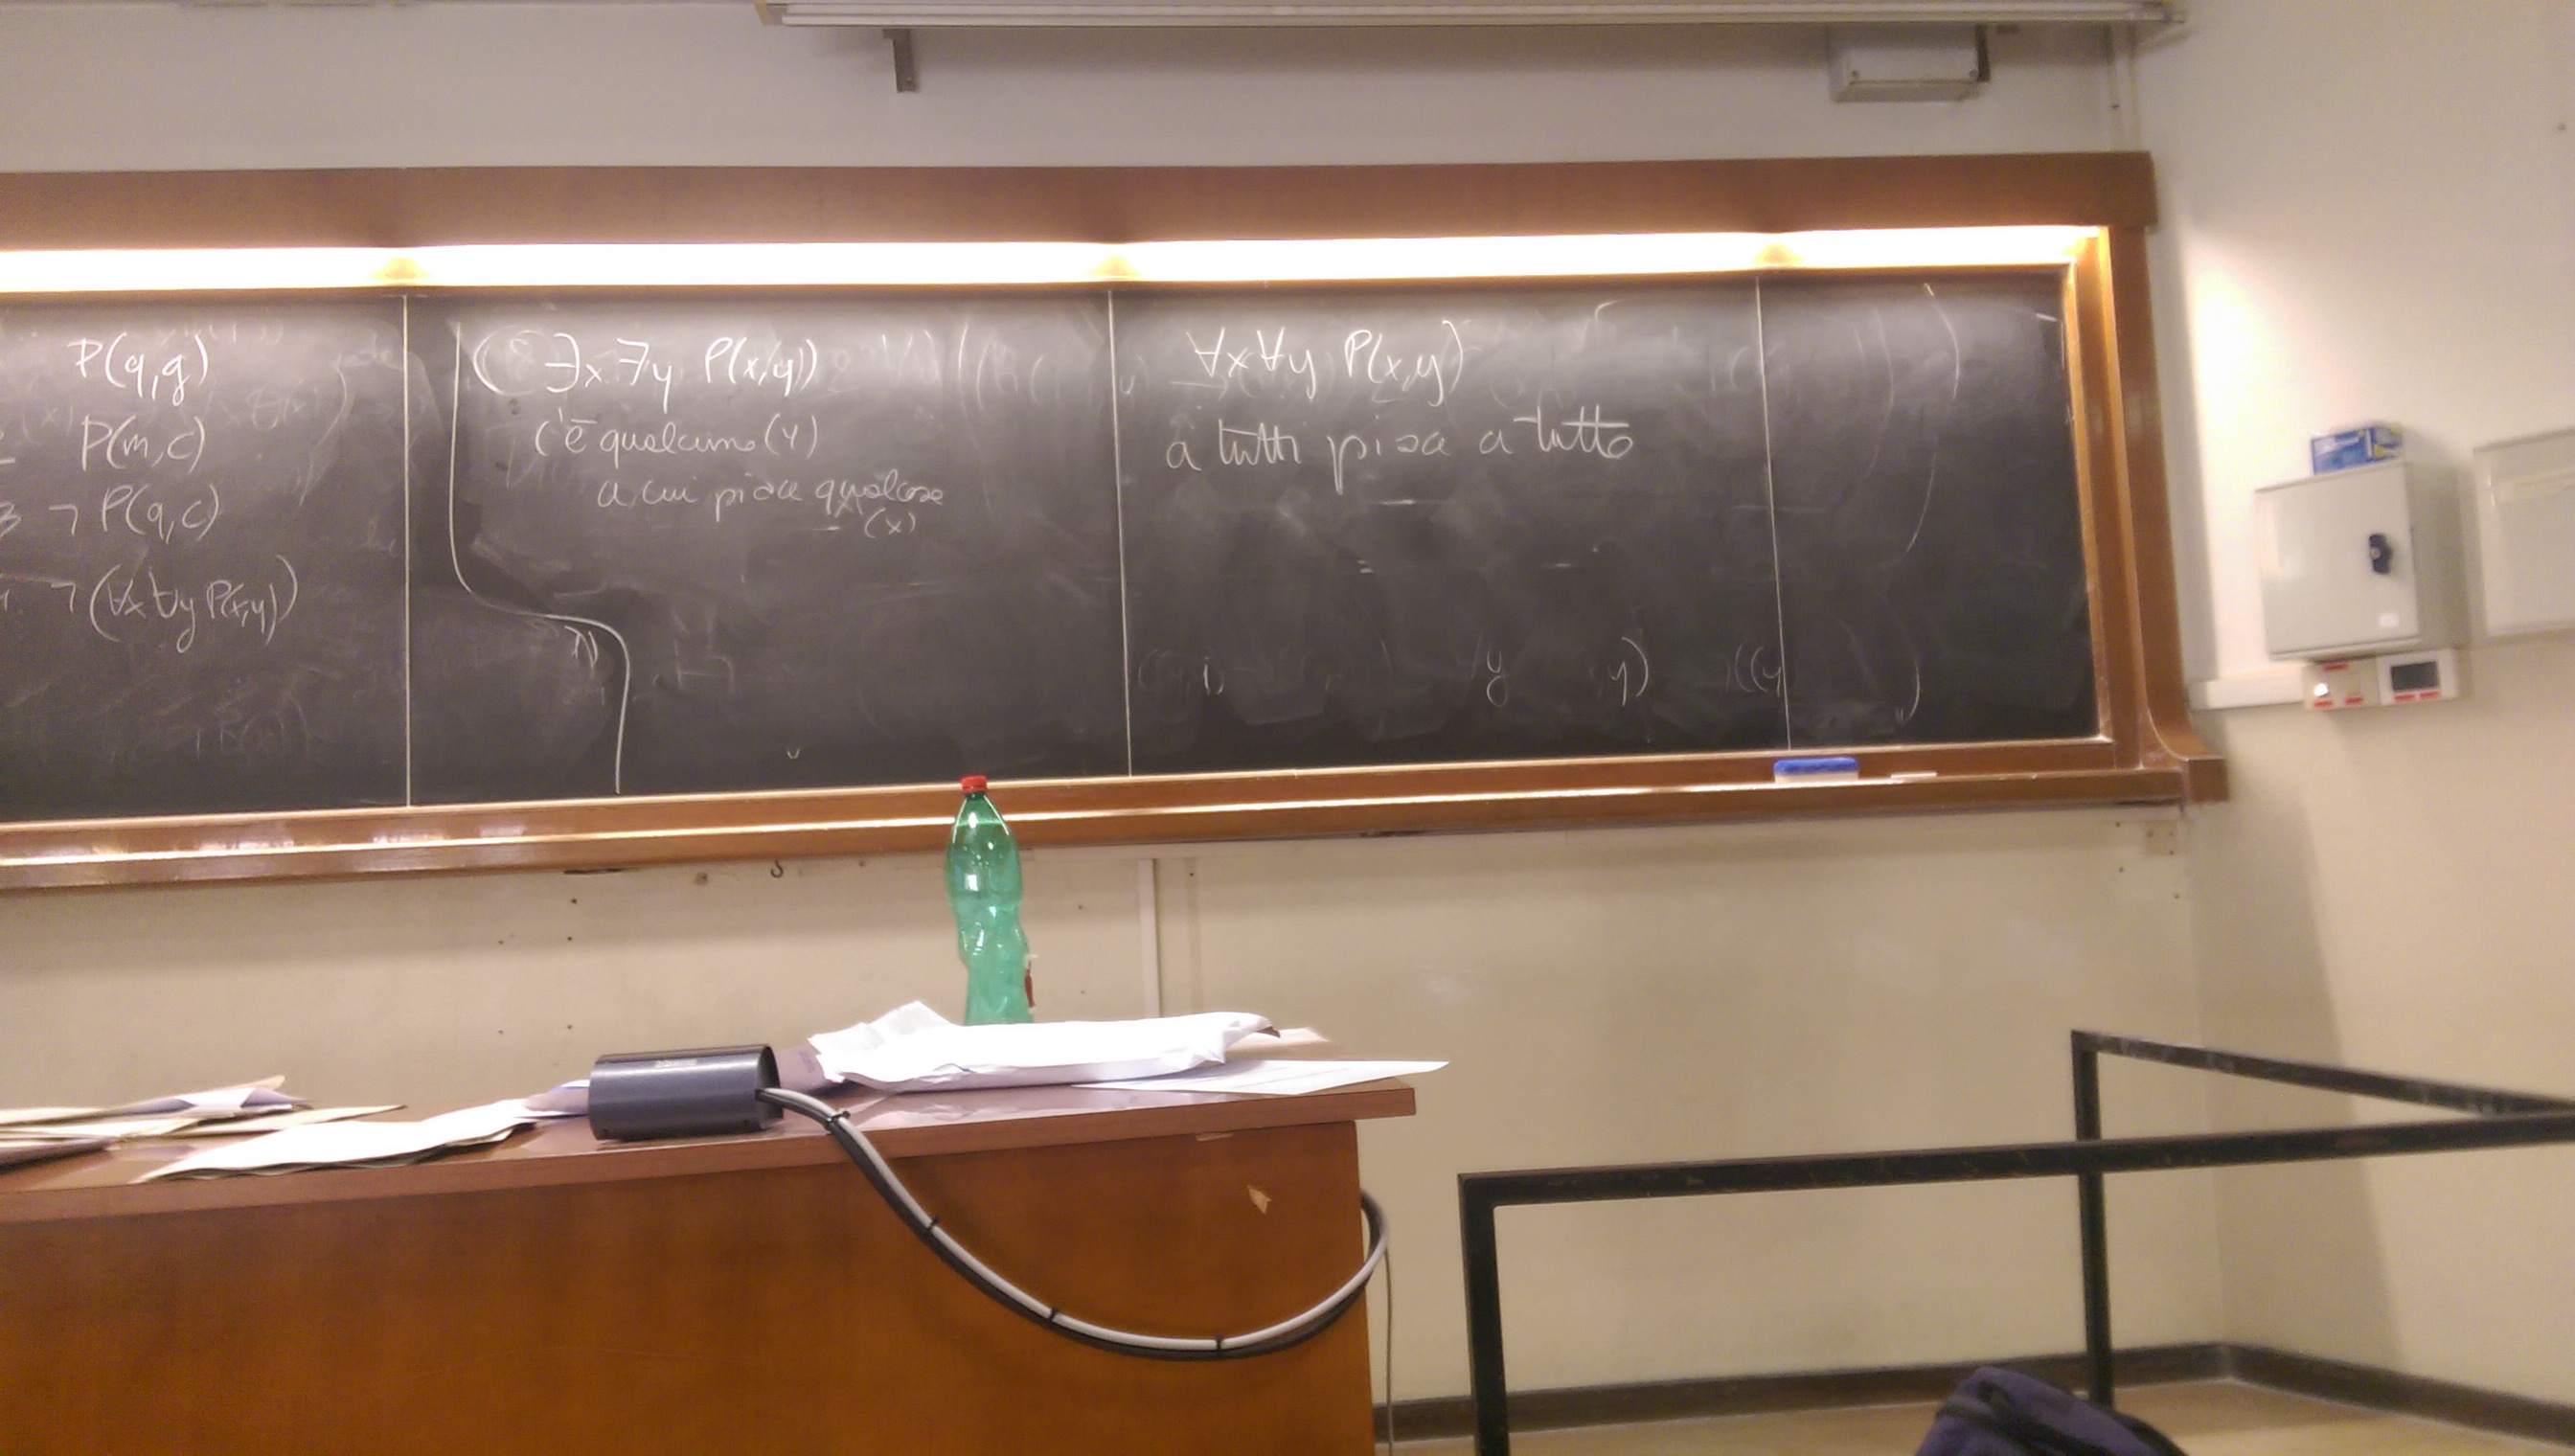 P(q,g)
P(m,c)
3 ¬ P(q,c)
¬ (∀x ∀y P(x,y))
∃x ∃y P(x,y)
c'è qualcuno (y)
a cui piace qualcosa
(x)
∀x ∀y P(x,y)
a tutti piace tutto
y
y)
((y